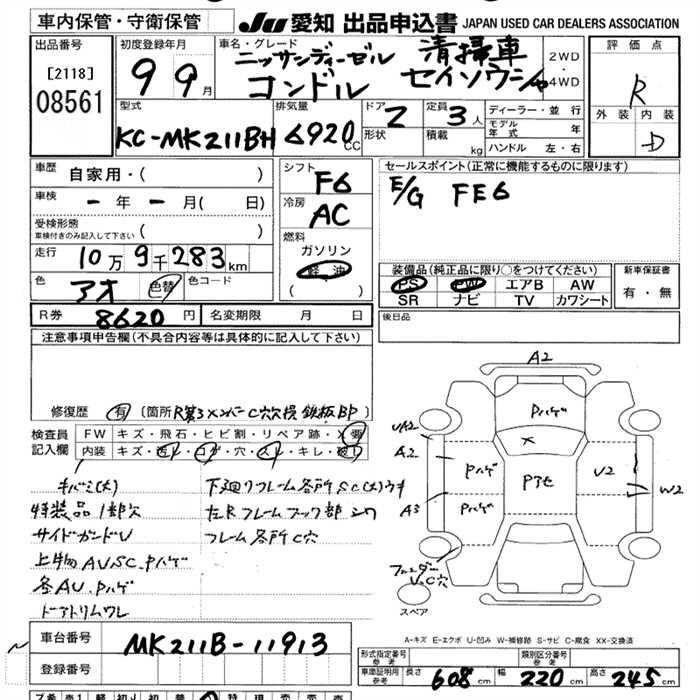 車内保管・守衛保管
JU 愛知 出品申込書 JAPAN USED CAR DEALERS ASSOCIATION
出品番号
[2118]
08561
初度登録年月
9 9月
車名・グレード
ニッサンディーゼル 清掃車
コンドル
2WD
・
4WD
評価点
R
外装 内装
D
型式
KC-MK211BH
排気量
6920 CC
ドア 2
形状
定員 3人
積載 kg
ディーラー・並行
モデル年式 年
ハンドル 左・右
車歴 自家用・( )
車検 ー年ー月( 日)
受検形態
車検付きのみ記入して下さい ( )
走行 10万9千283km
色 アオ 色替 色コード
シフト F6
冷房 AC
燃料
ガソリン
軽油
( )
セールスポイント(正常に機能するものに限ります)
E/G FE6
装備品(純正品に限り○をつけてください)
PS PW エアB AW
SR ナビ TV カワシート
新車保証書
有・無
R券 8620円 名変期限 月 日
後日品
注意事項申告欄(不具合内容等は具体的に記入して下さい)
修復歴 有 [箇所
検査員記入欄
FW キズ・飛石・ヒビ割・リペア跡・X要
内装 キズ・汚レ・コゲ・穴・スレ・キレ・破レ
キバミ(大)
特装品1部欠
サイドガードU
上物AU.SC.Pハゲ
各AU.Pハゲ
ドアトリムワレ
フレーム各所C穴
A2
Pハゲ
X
A2
Pハゲ
Pアセ
U2
W2
A3
Pハゲ
スペア
A-キズ E-エクボ U-凹み W-補修跡 S-サビ C-腐食 XX-交換済
車台番号 MK211B-11913
登録番号
形式指定番号
参考
類別区分番号
参考
車庫証明用
参考
長さ 608cm 幅 220cm 高さ 245cm